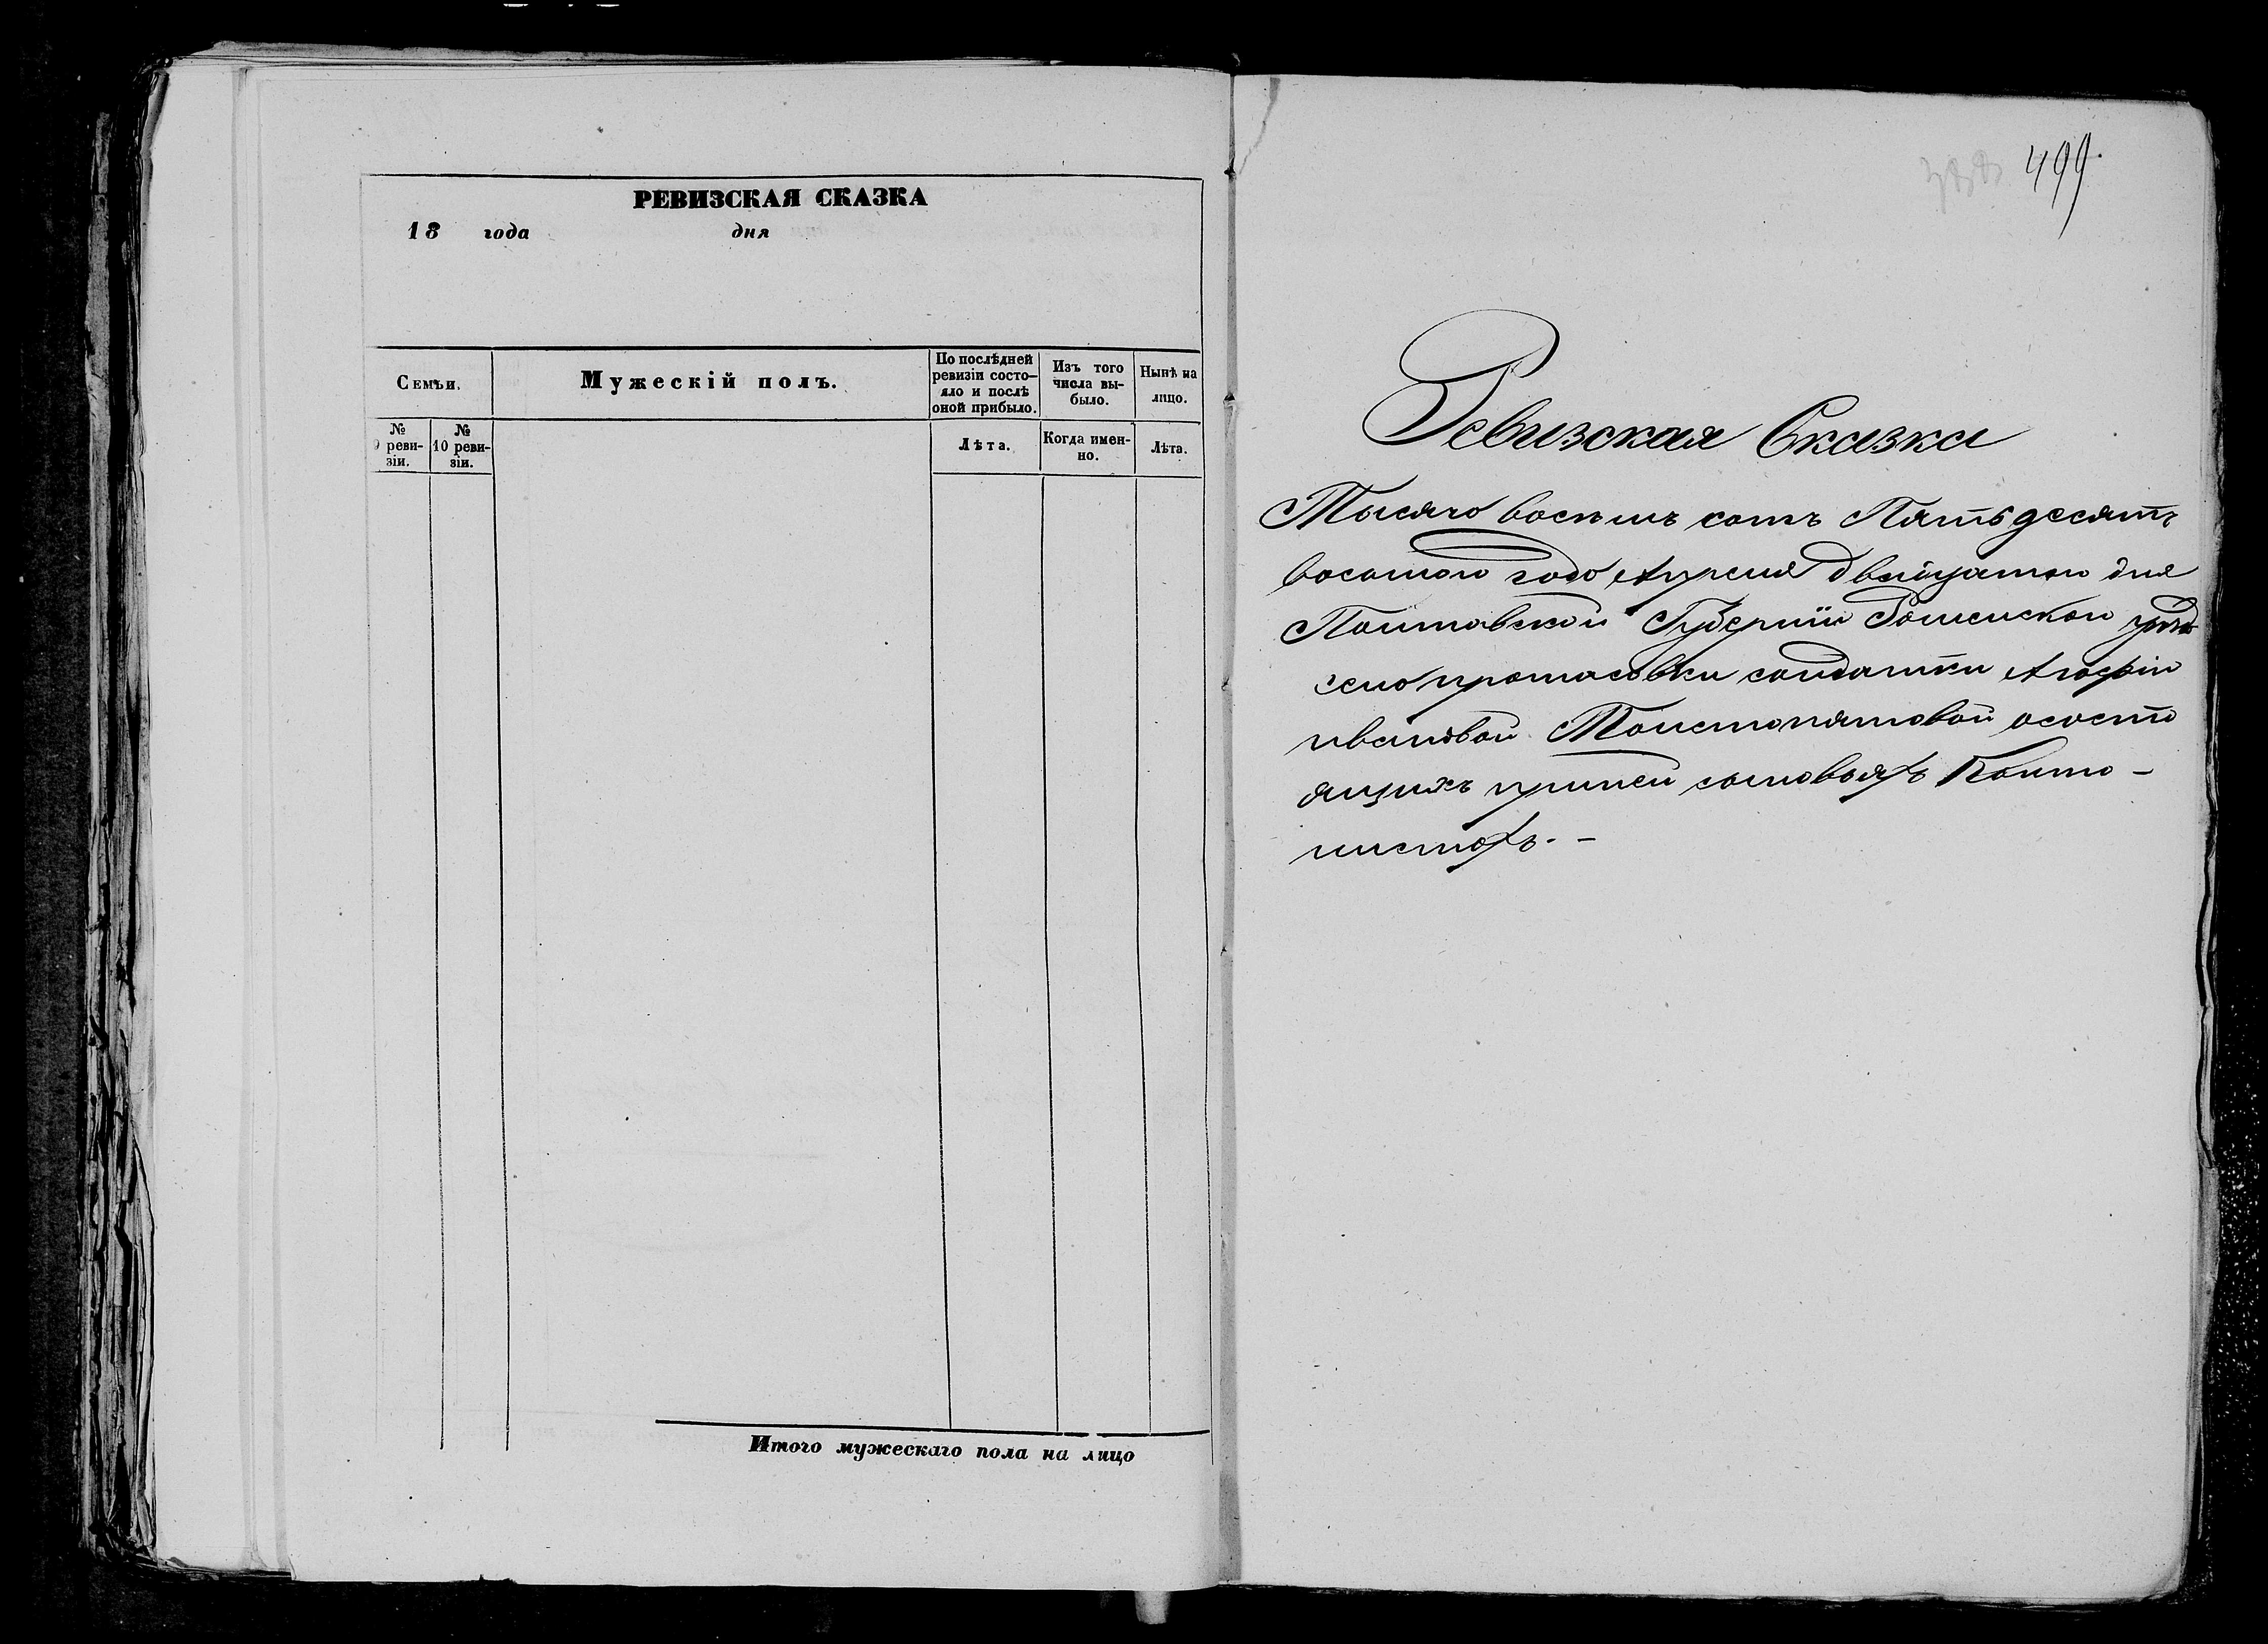 РЕВИЗСКАЯ СКАЗКА
18 года дня
Семьи.
Мужескій полъ.
По послѣдней
ревизіи состо-
яло и послѣ
оной прибыло.
Изъ того
числа вы-
было.
Нынѣ на
лицо.
№
9 реви-
зіи.
№
10 реви-
зіи.
Лѣта.
Когда имен-
но.
Лѣта.
Итого мужескаго пола на лицо
499.
Ревизская Сказка
Тысячо восемь сотъ Пятьдесятъ
восомого годо Апреля двайцатого дня
Полтавской Губернии Роменского уезда
село протасовки солдатки Агофіи
ивановой Толстопятовой ососто
ящихъ приней сыновьяхъ Канто-
нистохъ. -